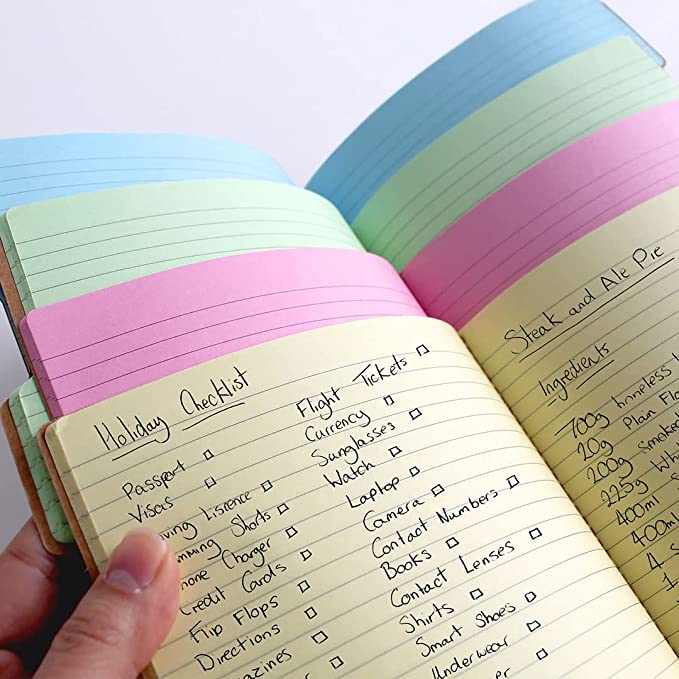 Holiday Checklist
Passport
Visas
Lisrence
Shorts
Charger
Credit Cards
Flip Flops
Directions
Flight Tickets
Currency
Sunglasses
Watch
Laptop
Camera
Contact Numbers
Books
Contact Lenses
Shirts
Smart Shoes
Underwear
Steak and Ale Pie
Ingredients
700g
20g Plain
200g Smoked
225g
400ml
400ml
4
1